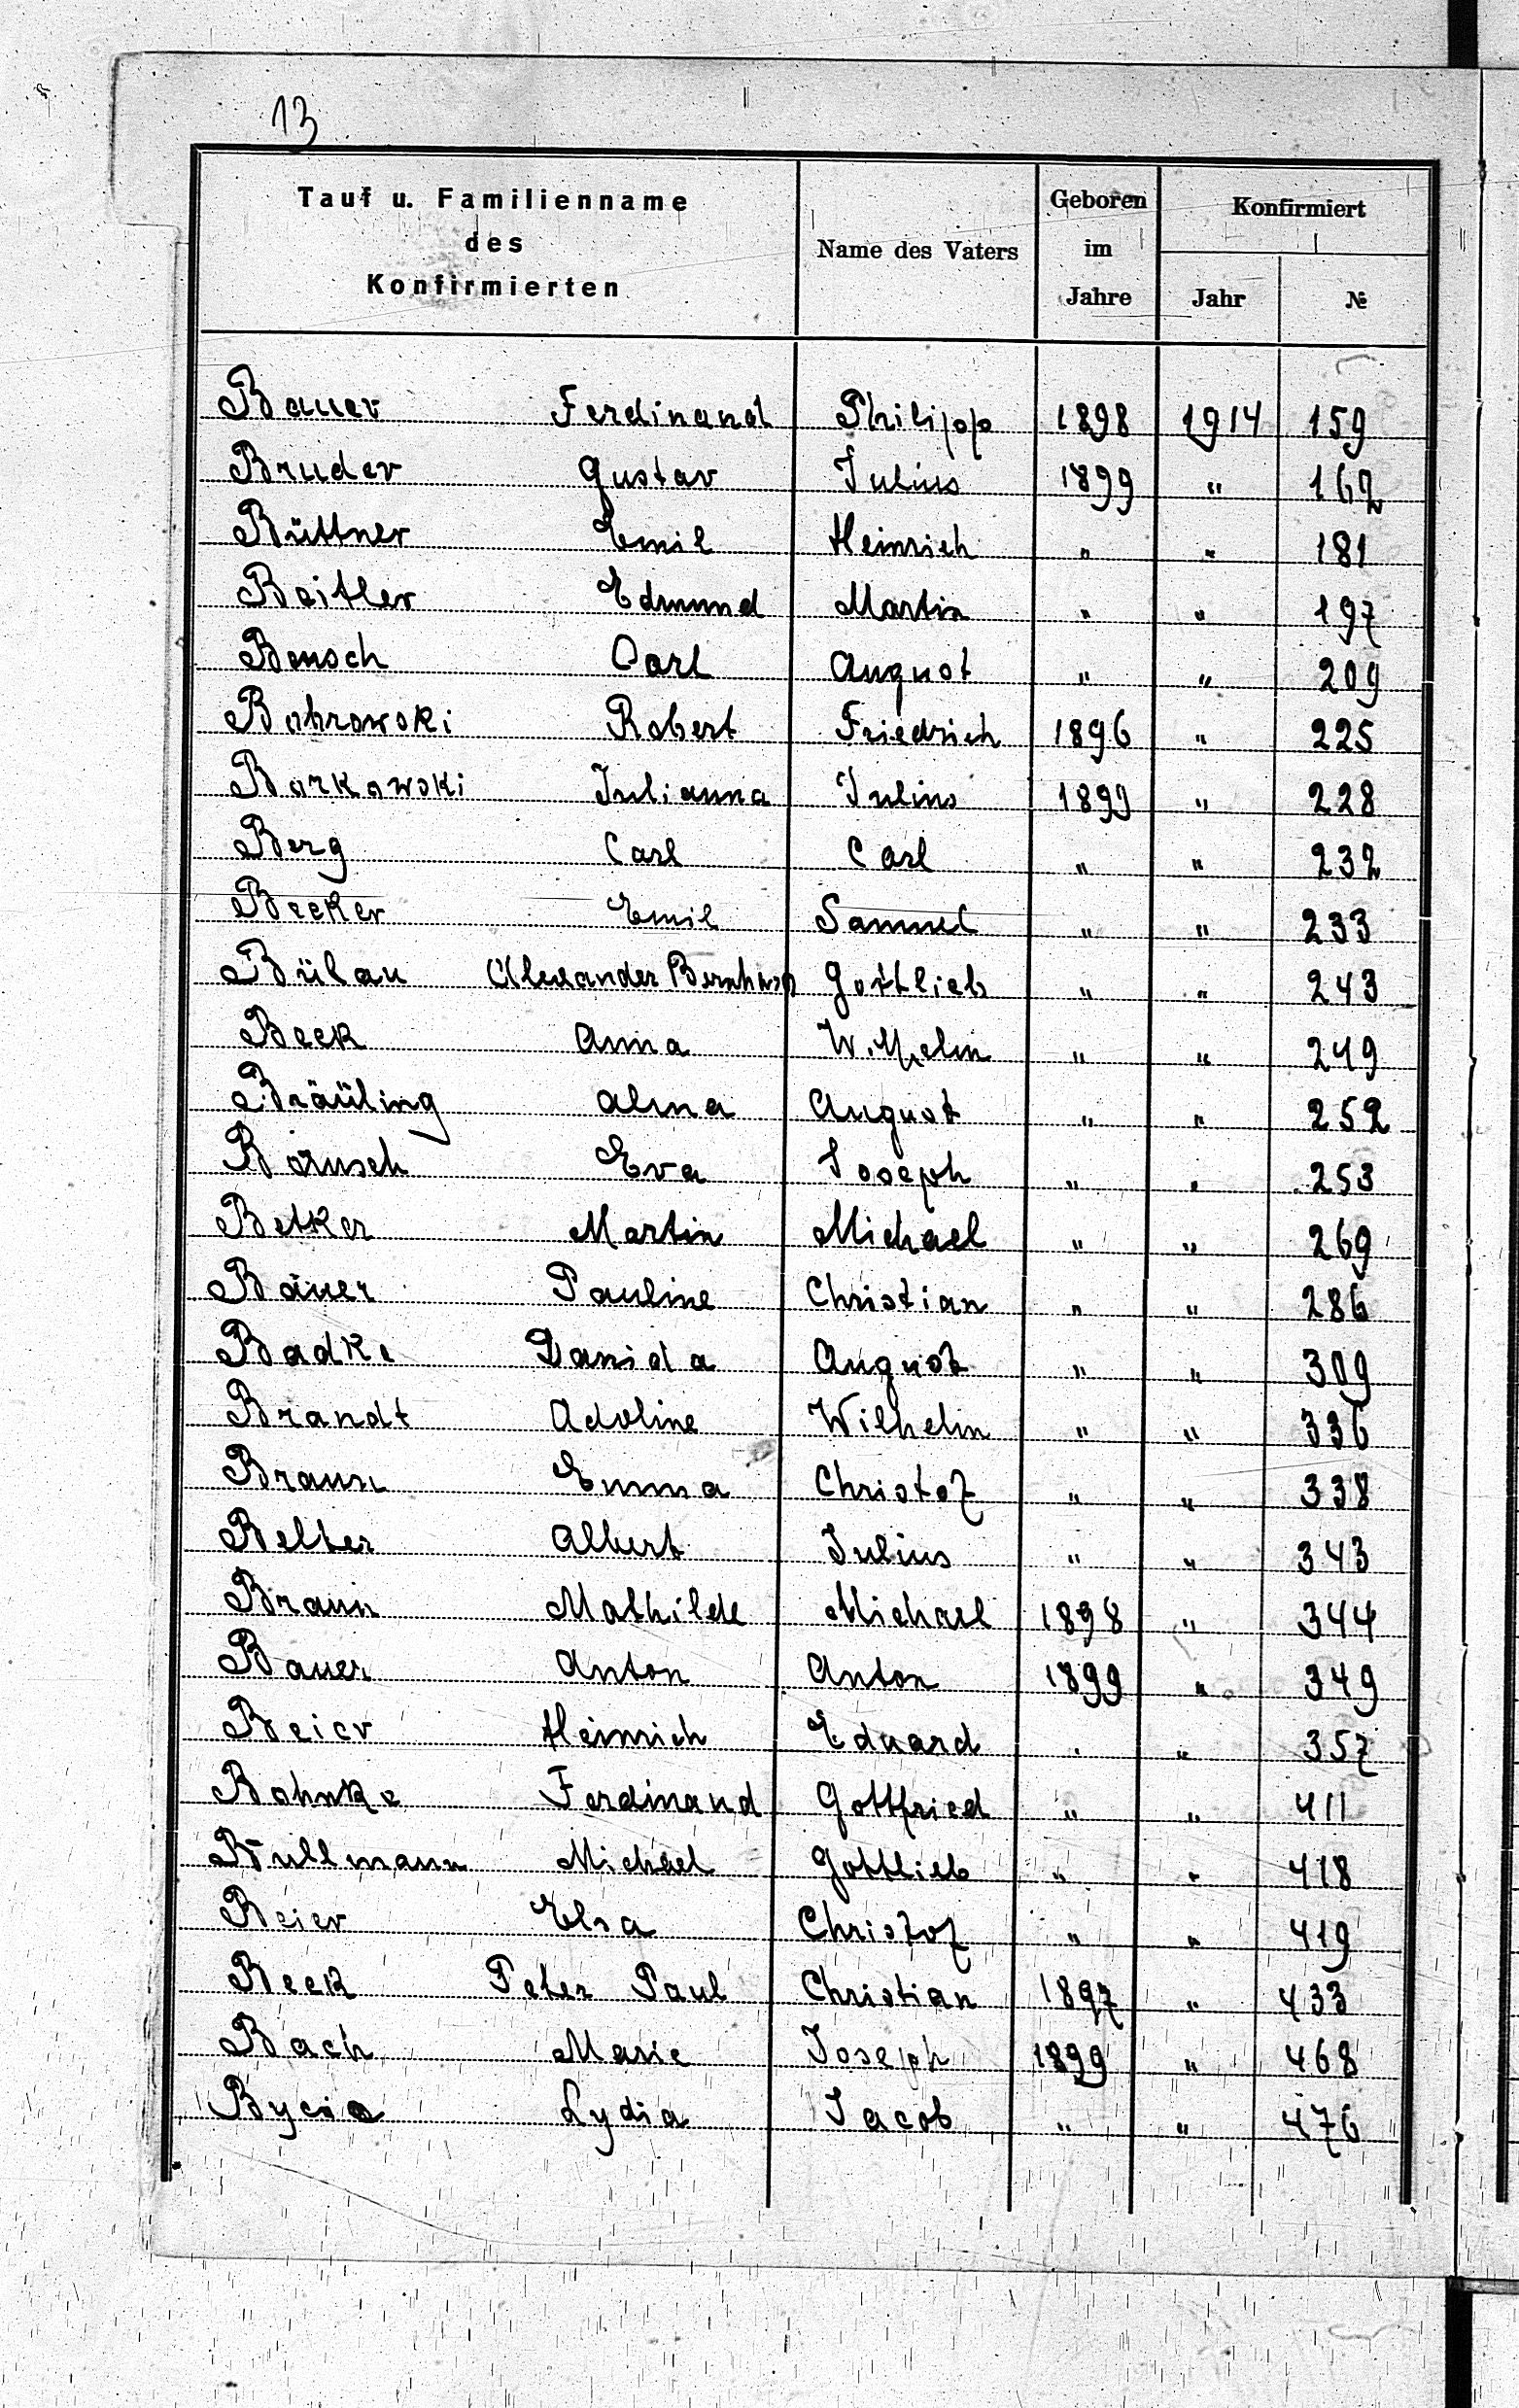 13
Tauf u. Familienname des Konfirmierten Name des Vaters Geboren im Jahre Konfirmiert Jahr №
Bauer Ferdinand Philipp 1898 1914 159
Bruder Gustav Julius 1899 " 162
Büttner Emil Heinrich " " 181
Beitler Edmund Martin " " 197
Bensch Carl August " " 209
Bobrowski Robert Friedrich 1896 " 225
Borkowski Julianna Julius 1899 " 228
Berg Carl Carl " " 232
Becker Emil Samuel " " 233
Bülau Alexander Bernhard Gottlieb " " 243
Beck Anna Wilhelm " " 249
Bräuling Alma August " " 252
Bäusch Eva Joseph " " 253
Betker Martin Michael " " 269
Bäuer Pauline Christian " " 286
Badke Davida August " " 309
Brandt Adoline Wilhelm " " 336
Braun Emma Christof " " 338
Belter Albert Julius " " 343
Braun Mathilde Michael 1898 " 344
Bauer Anton Anton 1899 " 349
Beier Heinrich Eduard " " 357
Bohnke Ferdinand Gottfried " " 411
Büllmann Michael Gottlieb " " 418
Beier Elsa Christof " " 419
Beck Peter Paul Christian 1897 " 433
Bach Marie Joseph 1899 " 468
Lydia Jacob " " 476